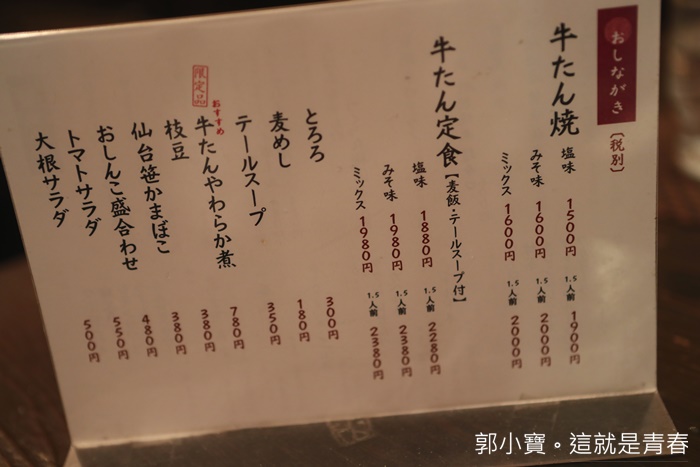 おしながき
〔税別〕
牛たん焼
塩味 1500円 1.5人前 1900円
みそ味 1600円 1.5人前 2000円
ミックス 1600円 1.5人前 2000円
牛たん定食【麦飯・テールスープ付】
塩味 1880円 1.5人前 2280円
みそ味 1980円 1.5人前 2380円
ミックス 1980円 1.5人前 2380円
とろろ 300円
麦めし 180円
テールスープ 350円
限定品 おすすめ
牛たんやわらか煮 780円
枝豆 380円
仙台笹かまぼこ 380円
おしんこ盛合わせ 480円
トマトサラダ 550円
大根サラダ 500円
郭小寶。這就是青春